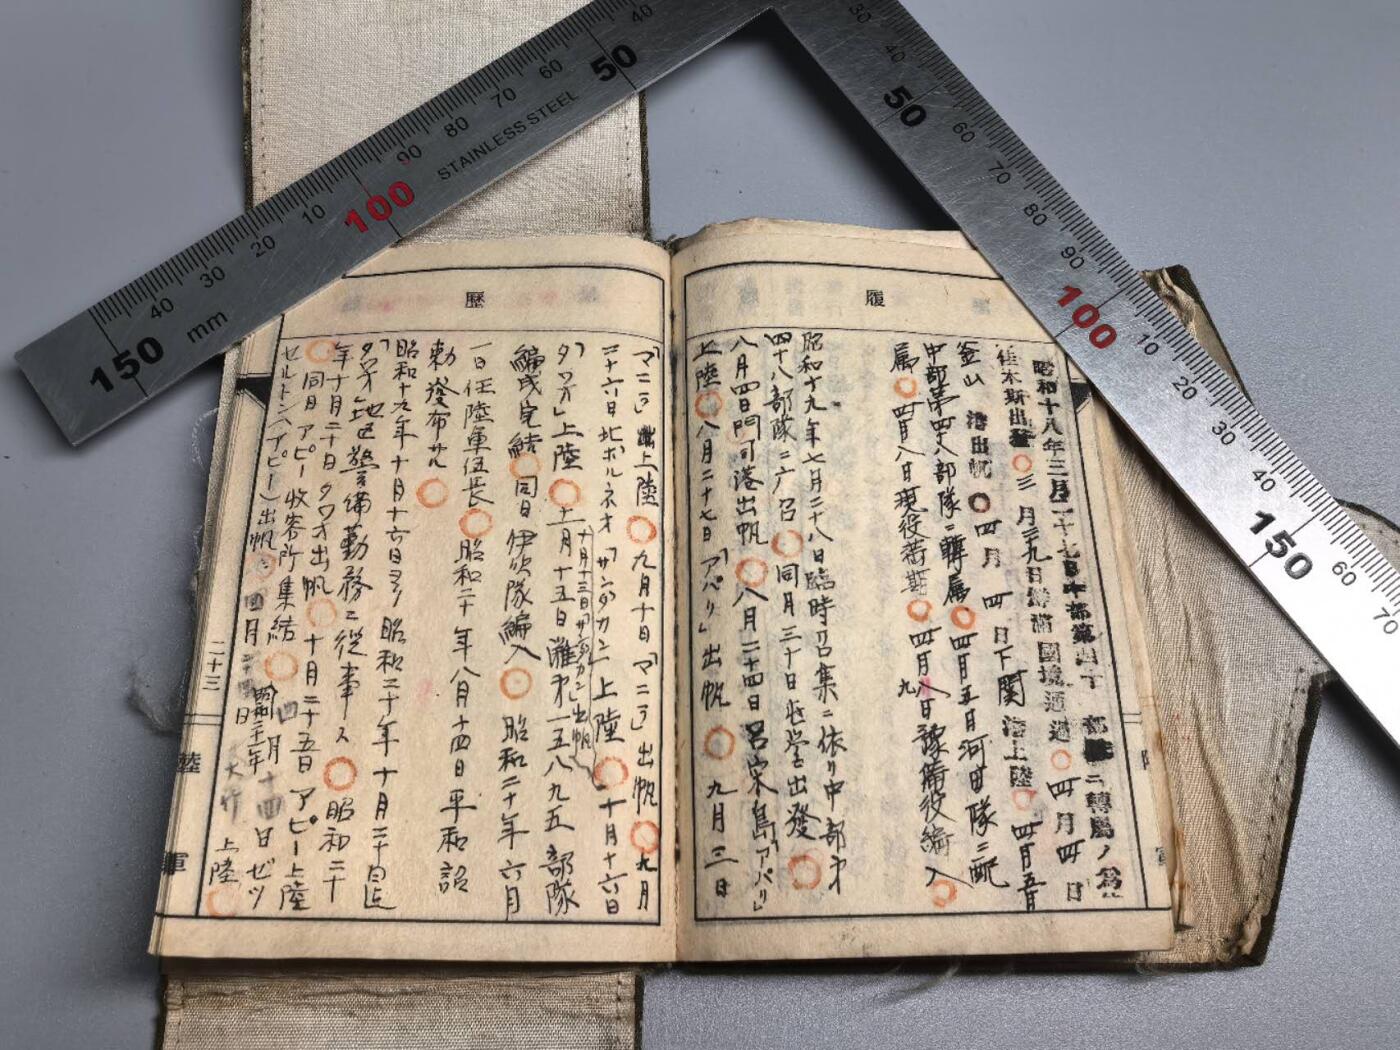 履
昭和十八年三月二十七日中部第四十部隊ニ轉属ノ為
佳木斯出發〇三月二九日鮮満國境通過〇四月四日
釜山港出帆〇四月四日下関港上陸〇四月五日
中部第四八部隊ニ轉属〇四月五日河田隊ニ配
属〇四月八日現役満期〇四月九日豫備役編入
昭和十九年七月二十八日臨時召集ニ依リ中部第
四十八部隊ニ應召〇同月三十日出發〇
八月四日門司港出帆〇八月二十四日呂宋島「アパリ」
上陸〇八月二十七日「アパリ」出帆〇九月三日
歷
「マニラ」上陸〇九月十日「マニラ」出帆〇九月
二十六日北ボルネオ「サンダカン」上陸〇十月十六日
十月十三日サンダカン出帆
「タワオ」上陸〇十一月十五日灘第一五八九五部隊
編成完結〇同日伊藤隊編入〇昭和二十年六月
一日任陸軍伍長〇昭和二十年八月十四日平和詔
勅發布サル〇
昭和十九年十月十六日ヨリ昭和二十年十月二十日迄
「タワオ」地区警備勤務ニ從事ス〇昭和二十
年十月二十日タワオ出帆〇十月二十五日アピー上陸
〇同日アピー收容所集結〇昭和二十一年四月十四日ゼツ
セルトン(アピー)出帆〇四月二十四日大竹上陸〇
二十三
陸軍
50
60
70
80
90
100
10
20
30
40
150
mm
STAINLESS STEEL
30
40
50
60
70
80
90
100
10
20
30
40
150
60
70